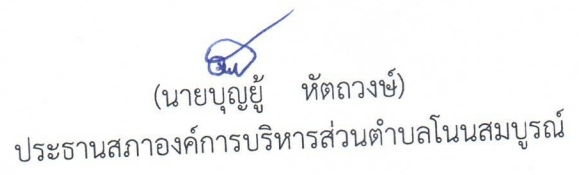 (นายบุญยู้ หัตถวงษ์)
ประธานสภาองค์การบริหารส่วนตำบลโนนสมบูรณ์